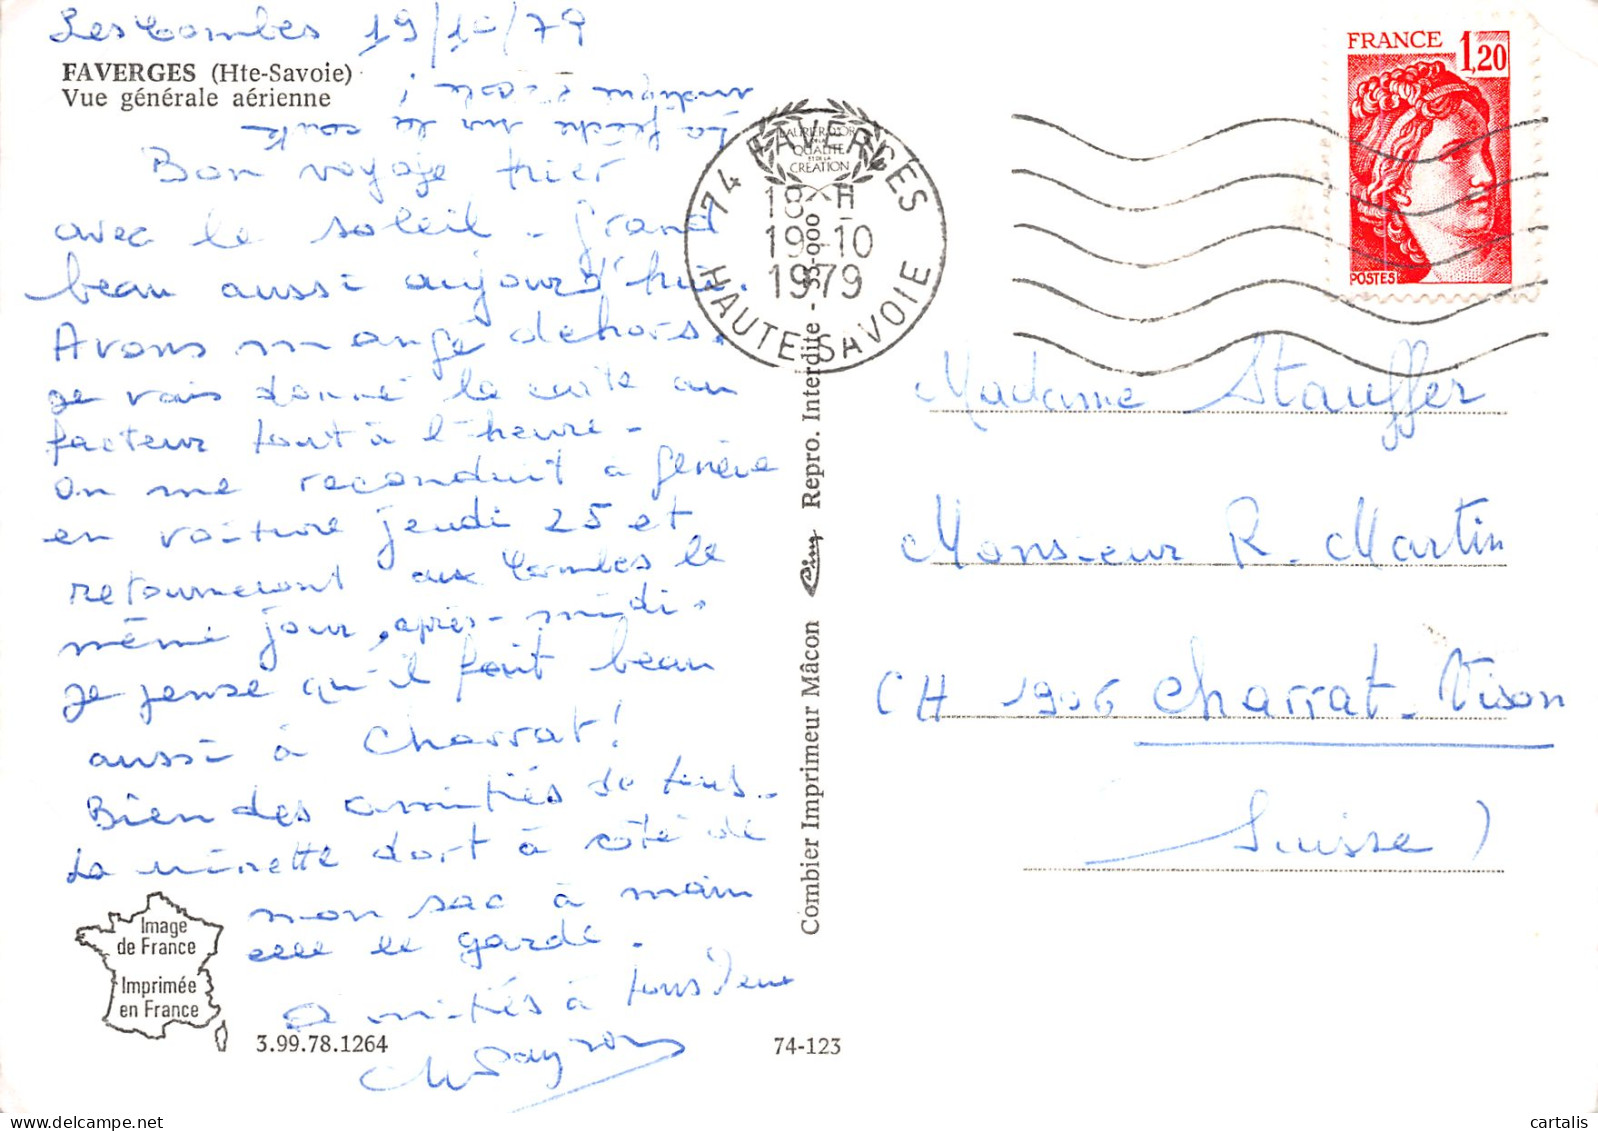 Les Combes 19/10/79
FAVERGES (Hte-Savoie)
Vue générale aérienne
La flèche sur la carte
indique l'école !
Bon voyage hier
avec le soleil - grand
beau aussi aujourd'hui.
Avons mangé dehors.
Je vais donné la carte au
facteur tout à l'heure -
On me reconduit à Genève
en voiture jeudi 25 et
retourneront aux Combes le
même jour, après-midi.
Je pense qu'il fait beau
aussi à Charrat !
Bien des amitiés de tous.
La minette dort à côté de
mon sac à main
elle le garde.
Amitiés à tous deux
Image
de France
Imprimée
en France
3.99.78.1264
74-123
Combier Imprimeur Mâcon
Cim
Repro. Interdite - 35-000
LAURIER D'OR
DE LA
QUALITÉ
ET DE LA
CRÉATION
74 FAVERGES
18 H
19-10
1979
HAUTE-SAVOIE
FRANCE 1,20
POSTES
Madame Stauffer
Monsieur R. Martin
CH 1906 Charrat-Vison
Suisse )
cartalis